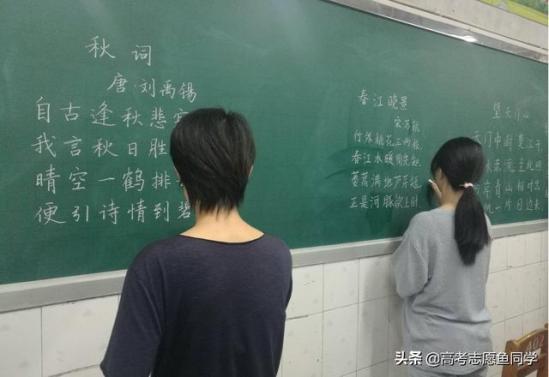 秋词
唐:刘禹锡
自古逢秋悲
我言秋日胜
晴空一鹤排
便引诗情到碧
春江晓景
宋 苏轼
竹外桃花三两枝
春江水暖鸭先知
蒌蒿满地芦芽短
正是河豚欲上时
望天门山
天门中断楚江开
水东流至此回
岸青山相对出
一片日边来
头条 @高考志愿鱼同学